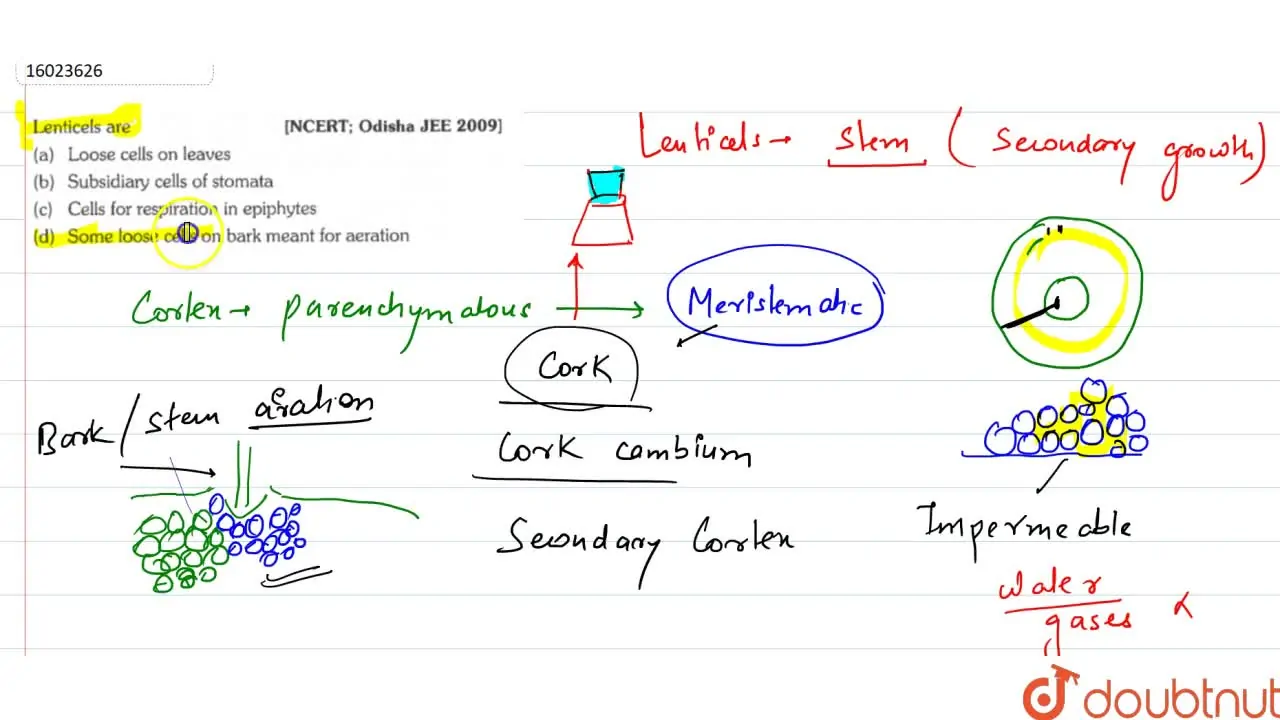 16023626
Lenticels are [NCERT; Odisha JEE 2009]
(a) Loose cells on leaves
(b) Subsidiary cells of stomata
(c) Cells for respiration in epiphytes
(d) Some loose cells on bark meant for aeration
Lenticels → Stem (Secondary growth)
Cortex → parenchymatous → Meristematic
Cork
Bark/stem aeration
Cork cambium
Secondary Cortex
Impermeable
water
gases
doubtnut